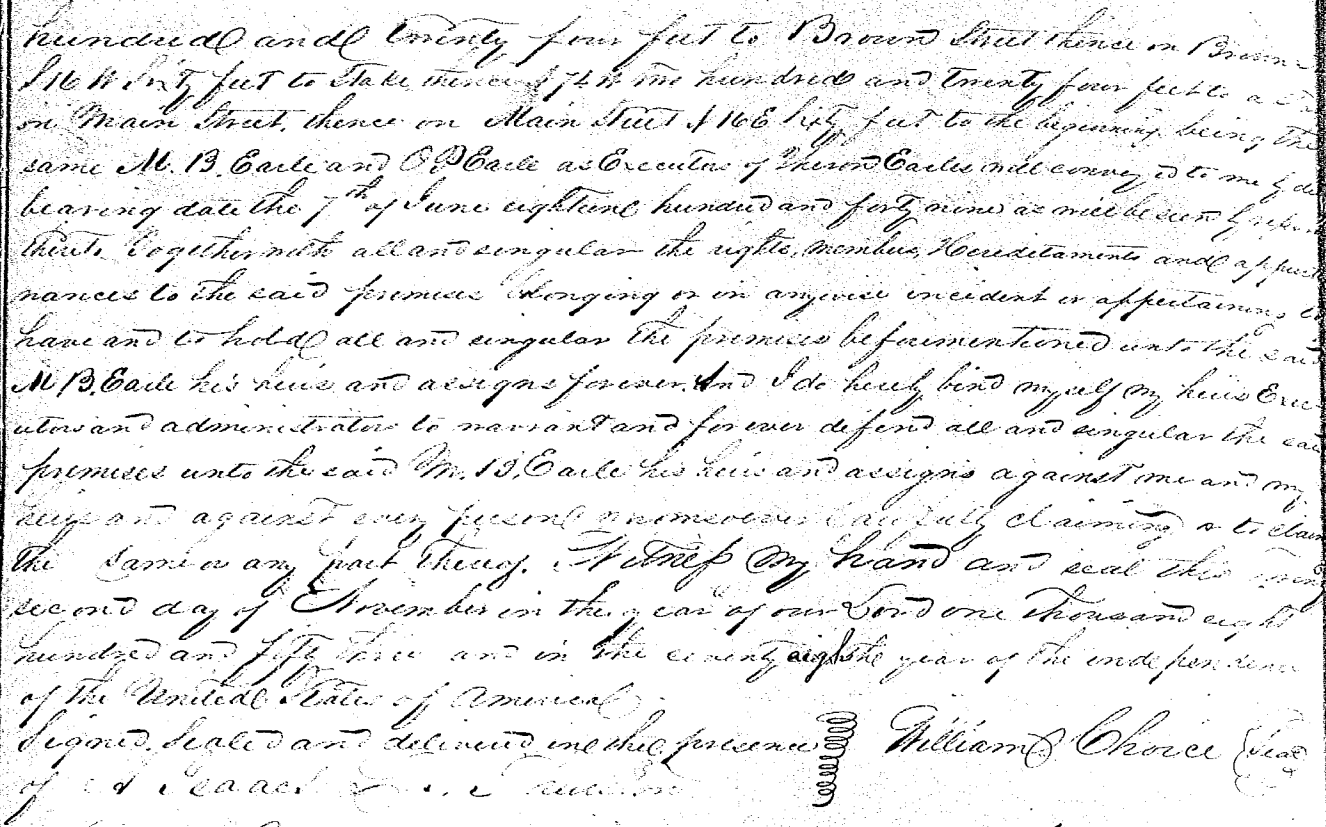 hundred and twenty four feet to Brown Street thence on Brown
S 16 W Sixty feet to Stake thence S 74 W one hundred and twenty four feet to a
on Main Street, thence on Main Street S 16 E Sixty feet to the beginning being the
same M. B. Earle and O. P. Earle as Executors of Theron Earles will convey ed to me by
bearing date the 7th of June eighteen hundred and forty nine as will be seen by
thereto Together with all and singular the rights, members, Hereditaments and appurte
nances to the said premises belonging or in anywise incident or appertaining to
have and to hold all and singular the premises beforementioned unto the said
M B. Earle his heirs and assigns forever. And I do hereby bind myself my heirs Exec
utors and administrators to warrant and forever defend all and singular the said
premises unto the said M. B. Earle his heirs and assigns against me and my
heirs and against every person whomsoever lawfully claiming or to claim
the same or any part thereof. Witness my hand and seal this
second day of November in the year of our Lord one thousand eight
hundred and fifty three and in the seventy eighth year of the independence
of the United States of America
Signed, Sealed and delivered in the presence William Choice Seal
of Isaacs